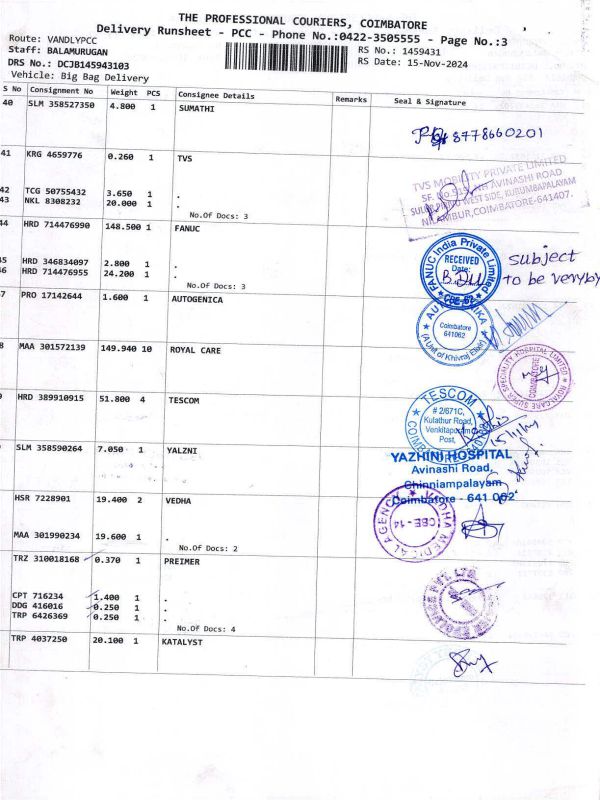 THE PROFESSIONAL COURIERS, COIMBATORE
Delivery Runsheet - PCC - Phone No.:0422-3505555 - Page No.:3
Route: VANDLYPCC
Staff: BALAMURUGAN
RS No.: 1459431
DRS No.: DCJB145943103
RS Date: 15-Nov-2024
Vehicle: Big Bag Delivery
S No Consignment No Weight PCS Consignee Details Remarks Seal & Signature
40 SLM 358527350 4.800 1 SUMATHI
8778660201
41 KRG 4659776 0.260 1 TVS
TVS MOBILITY PRIVATE LIMITED
AVINASHI ROAD
WEST SIDE, KURUMBAPALAYAM
COIMBATORE-641407.
42 TCG 50755432 3.650 1 .
43 NKL 8308232 20.000 1 .
No.Of Docs: 3
44 HRD 714476990 148.500 1 FANUC
FANUC India Private Limited
RECEIVED
Date:
CBE-62
subject
to be
45 HRD 346834097 2.800 1 .
46 HRD 714476955 24.200 1 .
No.Of Docs: 3
7 PRO 17142644 1.600 1 AUTOGENICA
Coimbatore
641062
(A Unit of Khivraj
8 MAA 301572139 149.940 10 ROYAL CARE
ROYALCARE SUPER SPECIALITY HOSPITAL LIMITED
COIMBATORE
9 HRD 389910915 51.800 4 TESCOM
TESCOM
# 2/671C,
Kulathur Road,
Post,
COIMBATORE
15/11/24
SLM 358590264 7.050 1 YALZNI
YAZHINI HOSPITAL
Avinashi Road,
Chinniampalayam
Coimbatore - 641 062
HSR 7228901 19.400 2 VEDHA
VEDHA MEDICAL AGENCY
CBE - 14
MAA 301990234 19.600 1 .
No.Of Docs: 2
TRZ 310018168 0.370 1 PREIMER
CPT 716234 1.400 1 .
DDG 416016 0.250 1 .
TRP 6426369 0.250 1 .
No.Of Docs: 4
TRP 4037250 20.100 1 KATALYST